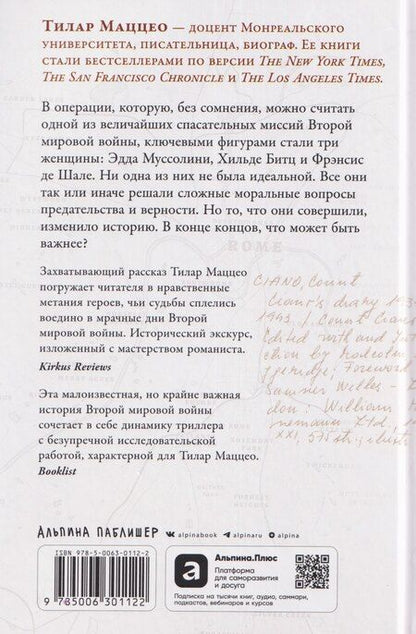 Тилар Маццео — доцент Монреальского
университета, писательница, биограф. Ее книги
стали бестселлерами по версии The New York Times,
The San Francisco Chronicle и The Los Angeles Times.
В операции, которую, без сомнения, можно считать
одной из величайших спасательных миссий Второй
мировой войны, ключевыми фигурами стали три
женщины: Эдда Муссолини, Хильде Битц и Фрэнсис
де Шале. Ни одна из них не была идеальной. Все они
так или иначе решали сложные моральные вопросы
предательства и верности. Но то, что они совершили,
изменило историю. В конце концов, что может быть
важнее?
ROME
Захватывающий рассказ Тилар Маццео
погружает читателя в нравственные
метания героев, чьи судьбы сплелись
воедино в мрачные дни Второй
мировой войны. Исторический экскурс,
изложенный с мастерством романиста.
Kirkus Reviews
Эта малоизвестная, но крайне важная
история Второй мировой войны
сочетает в себе динамику триллера
с безупречной исследовательской
работой, характерной для Тилар Маццео.
Booklist
CIANO, Count
Ciano's diary 193
1943 / Count Ciano
Edited with and
by Malcolm
Foreword
Sumner Welles -
don: William
nemann Ltd,
XXI, 575
АЛЬПИНА ПАБЛИШЕР
alpinabook alpinaru alpina
ISBN 978-5-0063-0112-2
9 785006 301122
a
Альпина.Плюс
Платформа
для саморазвития
и досуга
Подписка на тысячи книг, аудио, саммари,
подкастов, вебинаров и курсов